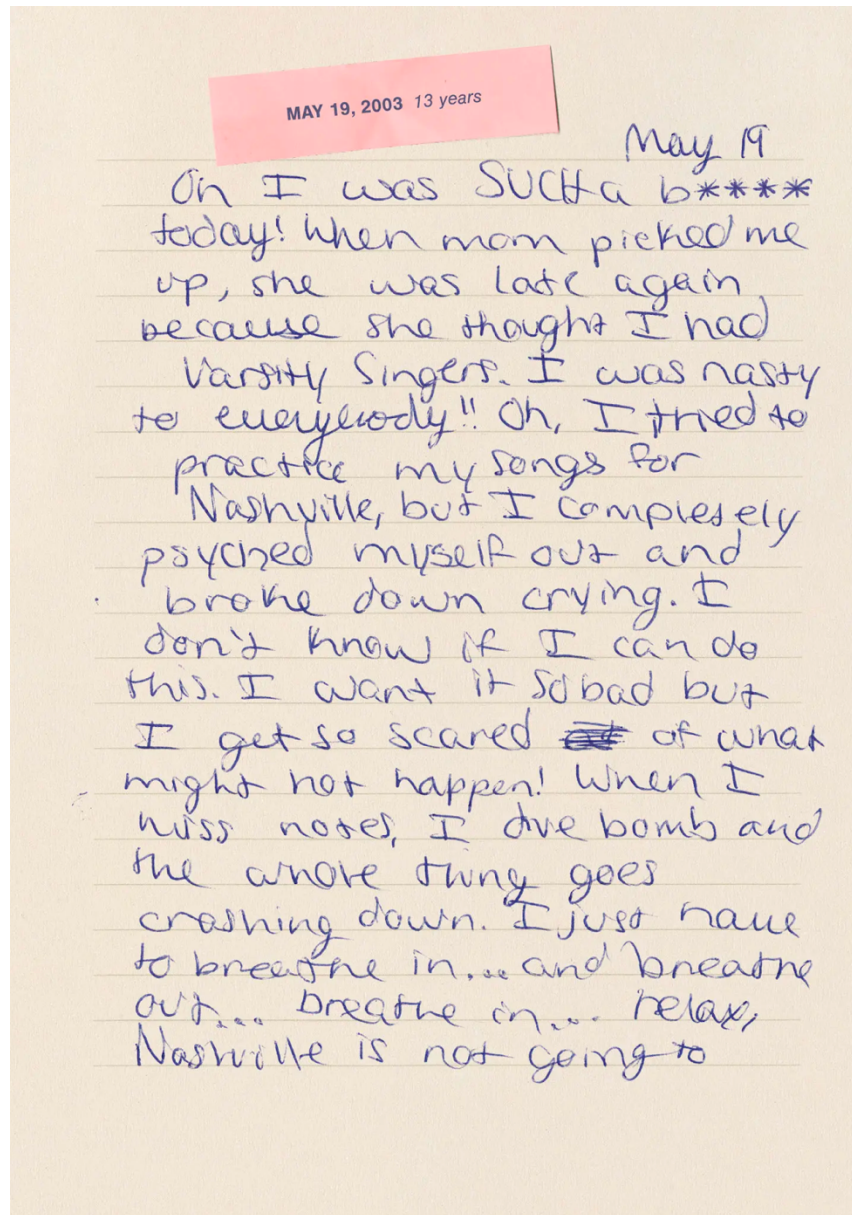 MAY 19, 2003 13 years
May 19
Oh I was SUCH a b****
today! When mom picked me
up, she was late again
because she thought I had
Varsity Singers. I was nasty
to everybody!! Oh, I tried to
practice my songs for
Nashville, but I completely
psyched myself out and
broke down crying. I
don't know if I can do
this. I want it so bad but
I get so scared of what
might not happen! When I
miss notes, I dive bomb and
the whole thing goes
crashing down. I just have
to breathe in... and breathe
out... breathe in... relax,
Nashville is not going to